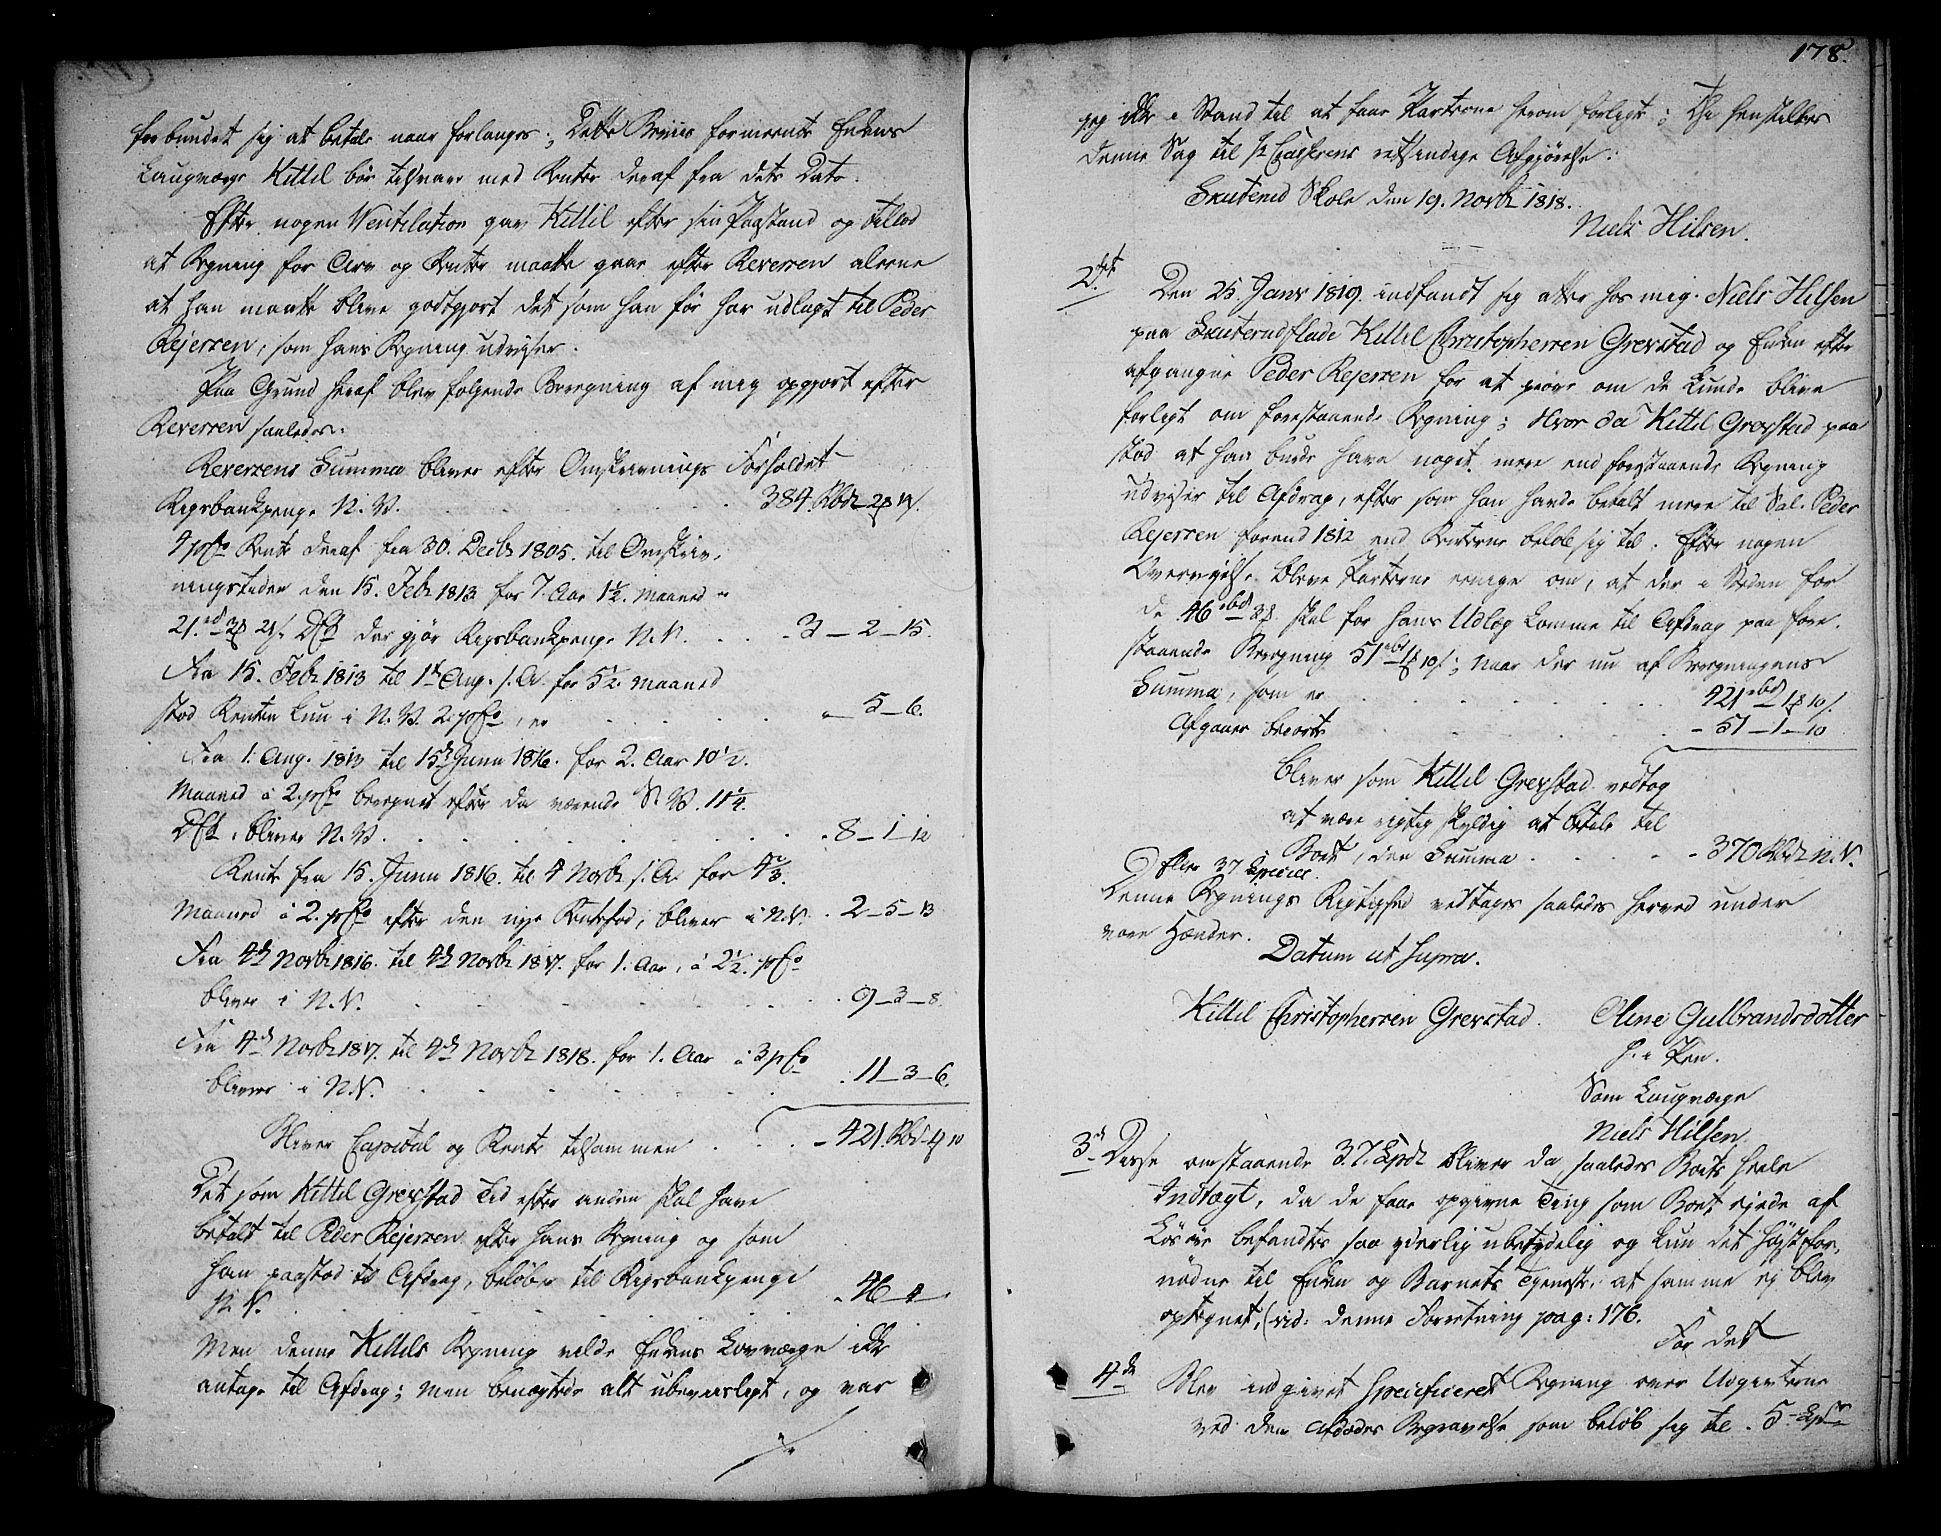 forbundet sig at betale naar forlanges; Dette Beviis formeente Enkens
Laugværge Kittil bør tilsvare med Renter deraf fra dets Dato.
Efter nogen Ventilation gav Kittil efter sin Paastand og tillod
at Regning for Arv og Renter maatte gaae efter Reverssen alene
at han maatte blive godtgjort det som han før har udlagt til Peder
Rejerssen, som hans Regning udviser.
Paa Grund heraf blev følgende Beregning af mig opgjort efter
Reverssen saaledes.
Reverssens Summa bliver efter Omskrivnings Forholdet
Rigsbankpenge N. V. 384 Rbdr
4 prCto Rente deraf fra 30. Decbr 1805. til Omskriv-
ningstiden den 15. Febr 1813 for 7. Aar 1½. Maaned
der gjør Rigsbankpenge N. V. 3 – 2 – 15.
Fra 15. Febr 1813 til 1ste Aug. s. A. for 5½ Maaned
stod Renten kun i N. V. 2 prCto, er – 5 – 6.
Fra 1. Aug. 1813 til 15de Junii 1816. for 2. Aar 10½.
Maaned á 2. prCto beregnet efter da værende S. V. 11¼.
bliver N. V. 8 – 1 – 12
Rente fra 15. Junii 1816. til 4 Novbr s. A. for 4⅔.
Maaned á 2. prCto efter den nye Rentefod, bliver i N. V. 2 – 5 – 13
Fra 4de Novbr 1816. til 4de Novbr 1817. for 1. Aar, á 2½. prCto
bliver i N. V. 9 – 3 – 8.
Fra 4de Novbr 1817. til 4de Novbr 1818. for 1. Aar á 3 prCto
bliver i N. V. 11 – 3 – 6.
Bliver Capital og Rente tilsammen 421 Rbd
Det som Kittil Grevstad Tid efter anden skal have
betalt til Peder Rejerssen efter hans Regning og som
han paastod til Afdrag, beløber til Rigsbankpenge
N. V. 46
Men denne Kittils Regning vilde Enkens Lavværge ikke
antage til Afdrag; men benægtede alt ubeviisligt, og var
178.
jeg ikke i Stand til at faae Parterne herom forligt; Thi henstilles
denne Sag til Hr. retsindige Afgjørelse.
Skuterud Skole den 19. Novbr 1818.
Niels Hilsen.
2det Den 25. Janv 1819. indfandt sig atter hos mig Niels Hilsen
paa Skuterudflade Kittil Christopherssen Grevstad og Enken efter
afgangne Peder Rejerssen for at prøve om de kunde blive
forligt om forestaaende Regning; Hvor da Kittil Grevstad paa
stod at han burde have noget mere end forestaaende Regning
udviser til Afdrag, efter som han havde betalt mere til Sal. Peder
Rejerssen forend 1812 end Renterne beløb sig til. Efter nogen
Overvejelse bleve Parterne eenige om, at der i Steden for
de 46 rbd skal for hans Udlæg komme til Afdrag paa fore-
staaende Beregning 51 rbd 1 10 s; naar der nu af Beregningens
Summa, som er 421 rbd 1 10 s.
Afgaaer 51 – 1 – 10
bliver som Kittil Grevstad vedtog
at være rigtig skyldig at betale til
Boet, den Summa 370 Rbdr N. V.
eller 37 Species.
Denne Regnings Rigtighed vedtages saaledes herved under
vore Hænder.
Datum ut supra.
Kittil Christopherssen Grevstad. Oline Gulbrandsdotter
h. i Pen.
Som Laugværge
Niels Hilsen.
3de Disse omstaaende 37. Spdr bliver da saaledes Boets heele
Indtægt, da de faae opgivne Ting som Boet ejede af
Løsøre befandtes saa yderlig ubetydelig og kun det højst for-
nødne til Enken og Barnets Tjeneste, at samme ej blev
optegnet, (vid: denne Forretning pag: 176.
For det
4de Blev indgivet Specificeret Regning over Udgivterne
ved den Afdødes Begravelse som beløb sig til 5 Spdr